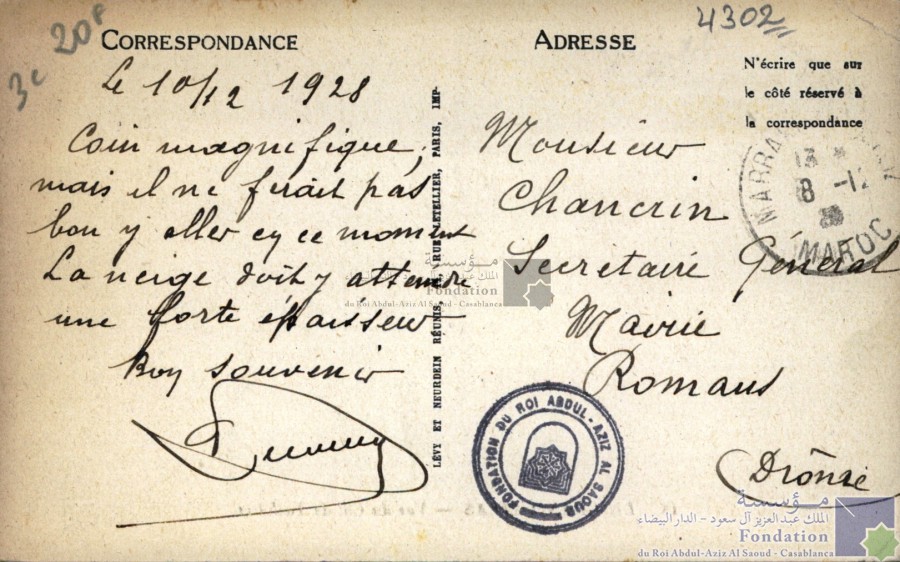 3c 20f
4302
CORRESPONDANCE
Le 10/12 1928
Coin magnifique,
mais il ne ferait pas
bon y aller en ce moment
La neige doit y attendre
une forte épaisseur
Bon souvenir
LÉVY ET NEURDEIN RÉUNIS, RUE LETELLIER, PARIS, IMP.
ADRESSE
N'écrire que sur
le côté réservé à
la correspondance
Monsieur
Chancrin
Secrétaire Général
Mairie
Romans
Drôme
8 -12
MAROC
FONDATION DU ROI ABDUL-AZIZ AL SAOUD
مؤسسة
الملك عبد العزيز آل سعود - الدار البيضاء
Fondation
du Roi Abdul-Aziz Al Saoud - Casablanca
مؤسسة
الملك عبد العزيز آل سعود - الدار البيضاء
Fondation
du Roi Abdul-Aziz Al Saoud - Casablanca